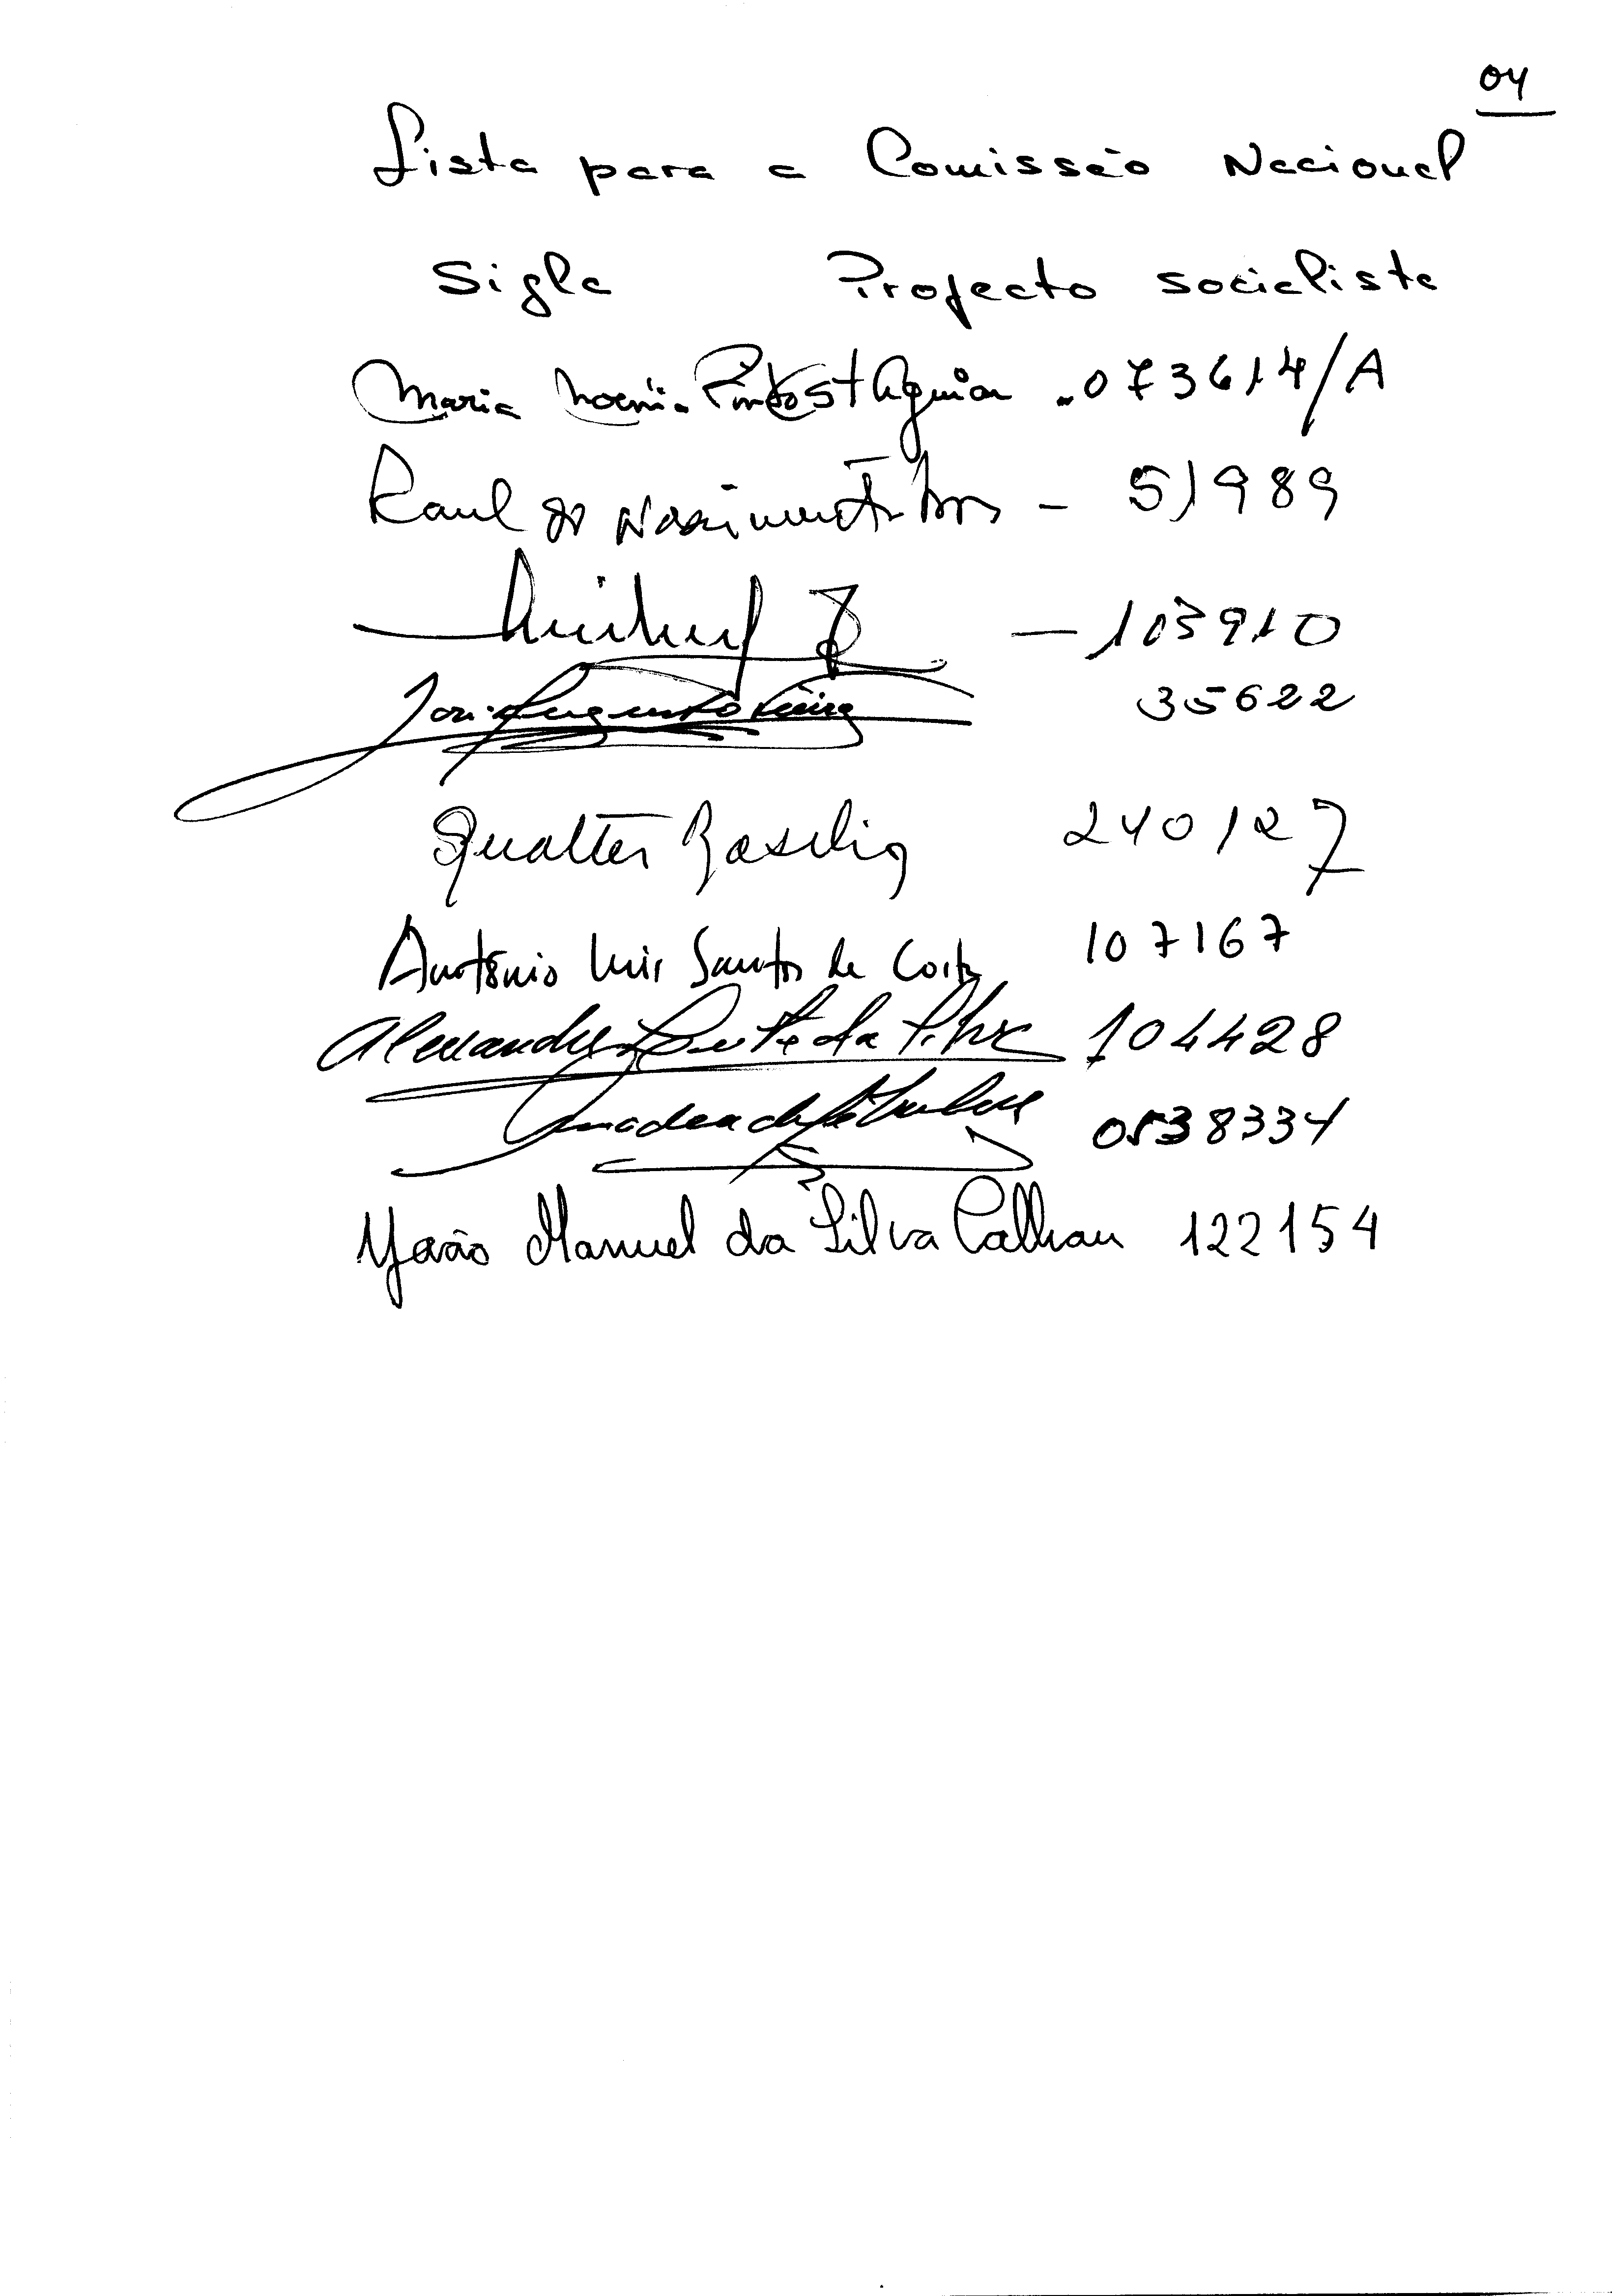 04
Lista para a Comissão Nacional
Sigla Projecto socialista
Maria Noémia Pinto St Aguiar - 073614/A
Raul do Nascimento - 51989
- 103910
José Augusto Vieira 35622
Gualter Basílio 240127
António Luis Santos da Costa 107167
Alexandre Leite da Silva 104428
0538334
João Manuel da Silva Calhau 122154